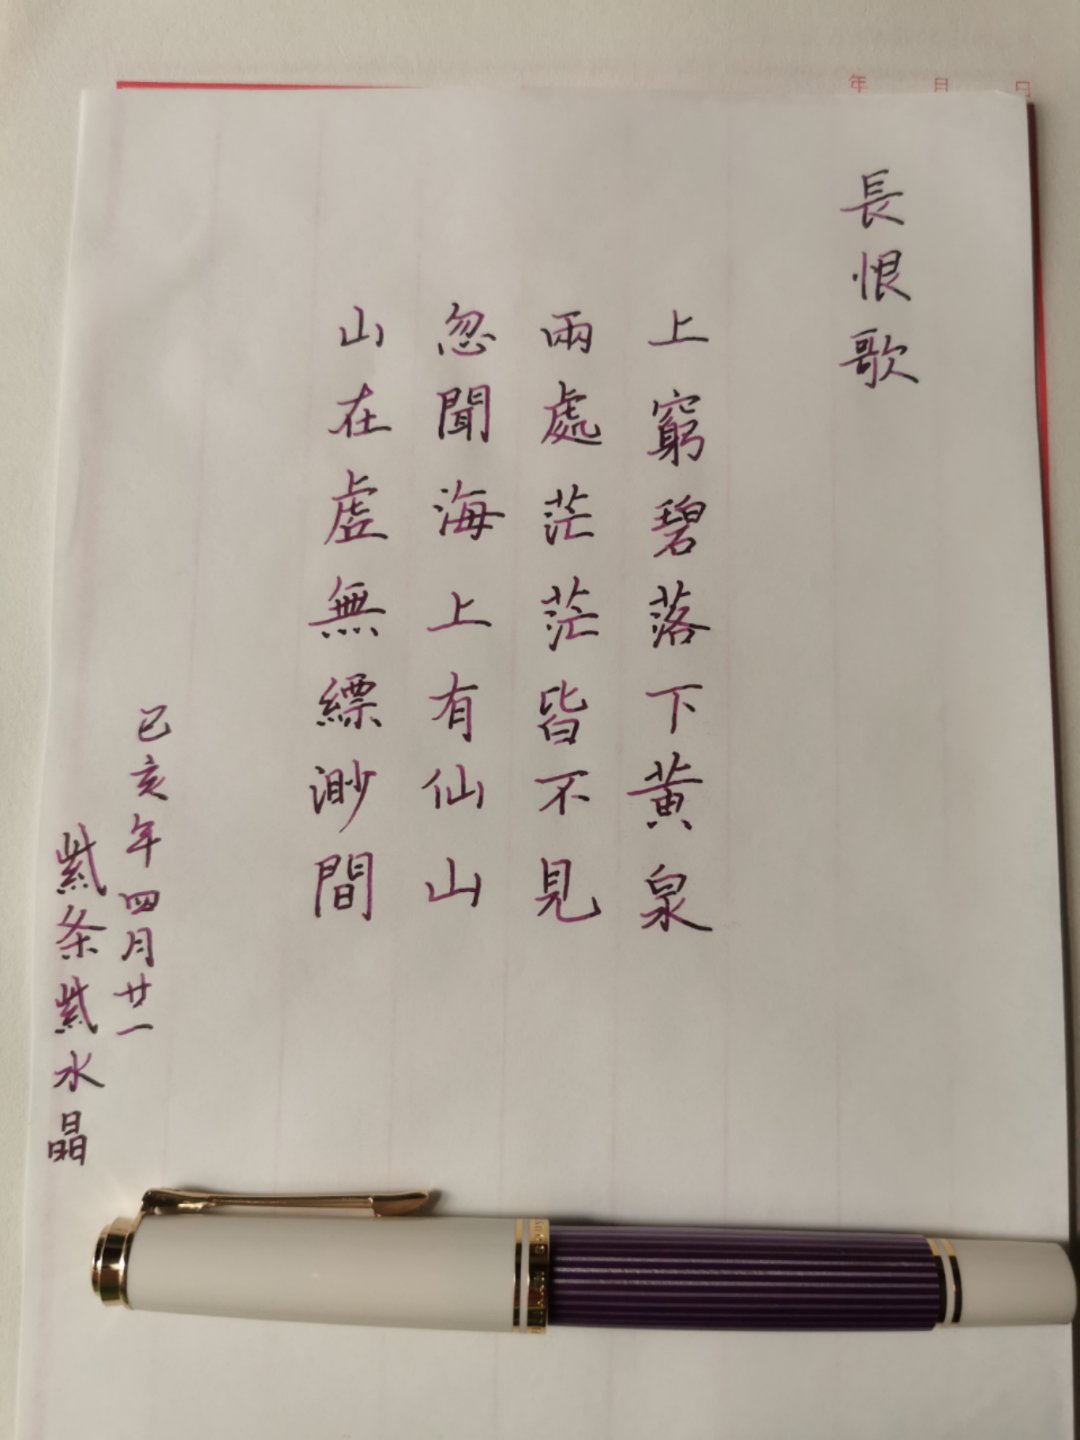 年 月 日
長恨歌
上窮碧落下黄泉
兩處茫茫皆不見
忽聞海上有仙山
山在虛無縹渺間
己亥年四月廿一
紫条紫水晶